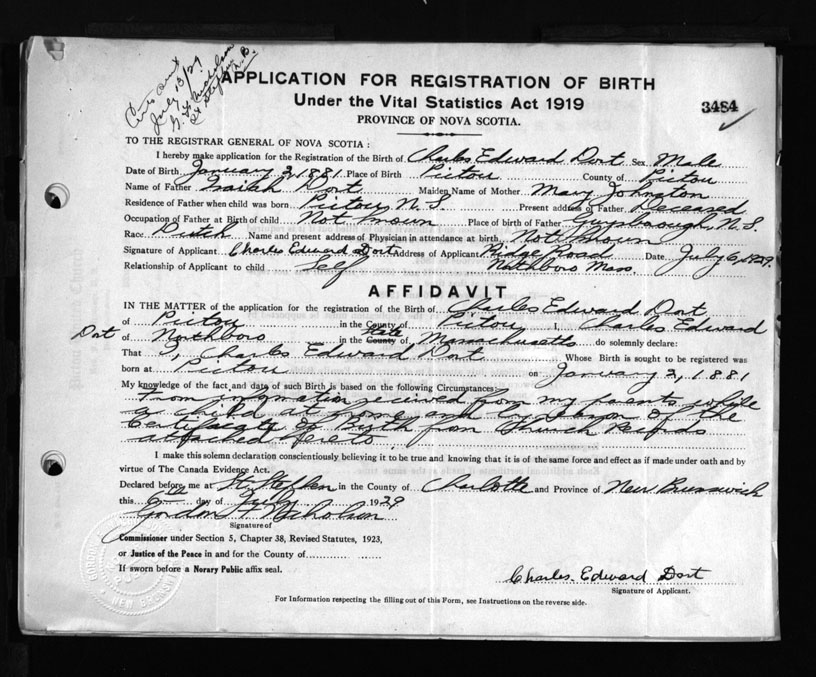 Cert sent
July 13/29
G. H. Nicholson
St Stephen
N. B.
APPLICATION FOR REGISTRATION OF BIRTH
Under the Vital Statistics Act 1919
3484
PROVINCE OF NOVA SCOTIA.
TO THE REGISTRAR GENERAL OF NOVA SCOTIA:
I hereby make application for the Registration of the Birth of Charles Edward Dort Sex Male
Date of Birth January 2, 1881 Place of Birth Pictou County of Pictou
Name of Father Isaiah Dort Maiden Name of Mother Mary Johnston
Residence of Father when child was born Pictou, N. S. Present address of Father Deceased
Occupation of Father at Birth of child Not known Place of birth of Father Guysborough, N. S.
Race Dutch Name and present address of Physician in attendance at birth Not known
Signature of Applicant Charles Edward Dort Address of Applicant Ridge Road Date July 6, 1929.
Relationship of Applicant to child Self Northboro Mass.
AFFIDAVIT
IN THE MATTER of the application for the registration of the Birth of Charles Edward Dort
of Pictou in the County of Pictou I, Charles Edward
Dort of Northboro in the County State of Massachusetts do solemnly declare:
That I, Charles Edward Dort Whose Birth is sought to be registered was
born at Pictou on January 2, 1881
My knowledge of the fact and date of such Birth is based on the following Circumstances
From information received from my parents while
a child at home and by reason of the
Certificate of Birth from Church Records
attached hereto
I make this solemn declaration conscientiously believing it to be true and knowing that it is of the same force and effect as if made under oath and by
virtue of The Canada Evidence Act.
Declared before me at St. Stephen in the County of Charlotte and Province of New Brunswick
this 6th day of July 1929
Gordon H Nicholson
Signature of
Commissioner under Section 5, Chapter 38, Revised Statutes, 1923,
or Justice of the Peace in and for the County of
If sworn before a Norary Public affix seal.
Charles Edward Dort
Signature of Applicant.
For Information respecting the filling out of this Form, see Instructions on the reverse side.